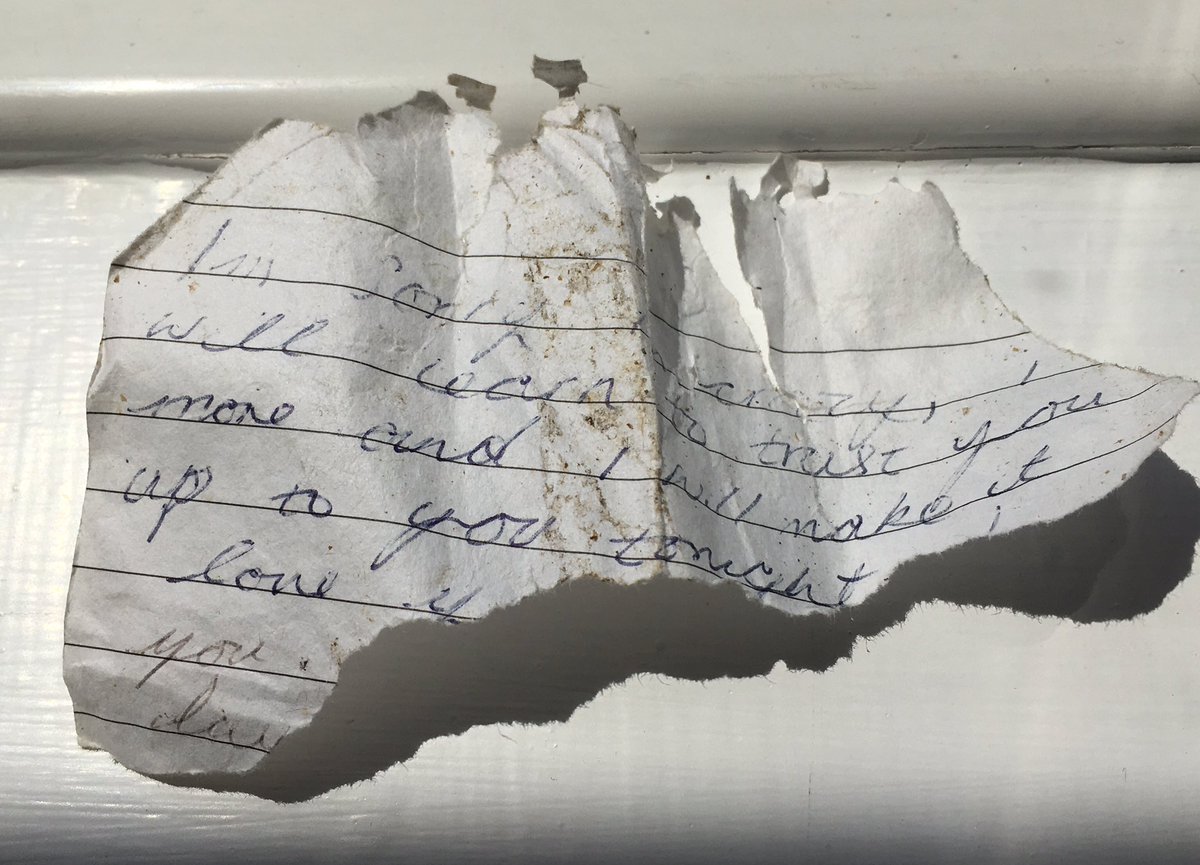 Im sorry crazy, I
will learn to trust you
more and I will make it
up to you tonight
love y
you.